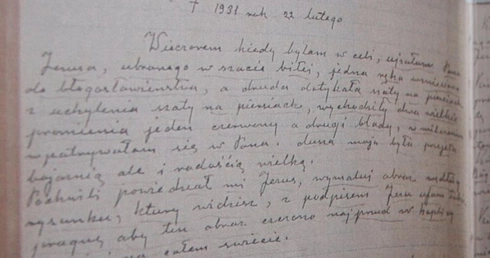 † 1931 rok 22 lutego
Wieczorem kiedy byłam w celi, ujrzałam Pana
Jezusa, ubranego w szacie białej, jedna ręka wzniesiona
do błogosławieństwa, a druga dotykała szaty na piersiach
z uchylenia szaty na piersiach, wychodziły dwa wielkie
promienia jeden czerwony a drugi blady, w milczeniu
wpatrywałam się w Pana. dusza moja była przejęta
bojaźnią ale i radością wielką.
Po chwili powiedział mi Jezus, wymaluj obraz według
rysunku, który widzisz, z podpisem Jezu ufam
pragnę aby ten obraz czczono najprzód w kaplicy
na całem świecie.